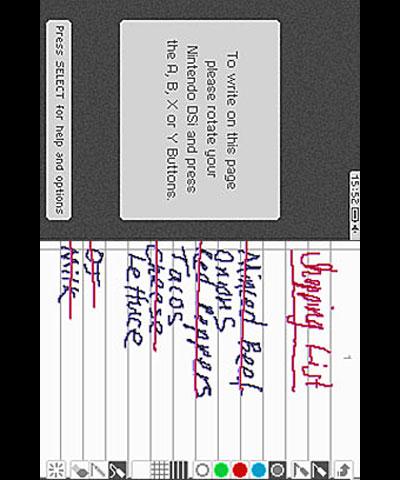 15:52
To write on this page
please rotate your
Nintendo DSi and press
the A, B, X or Y Buttons.
Press SELECT for help and options
1
Shopping List
Minced Beef
Onions
Red Peppers
Tacos
Cheese
Lettuce
OJ
Milk